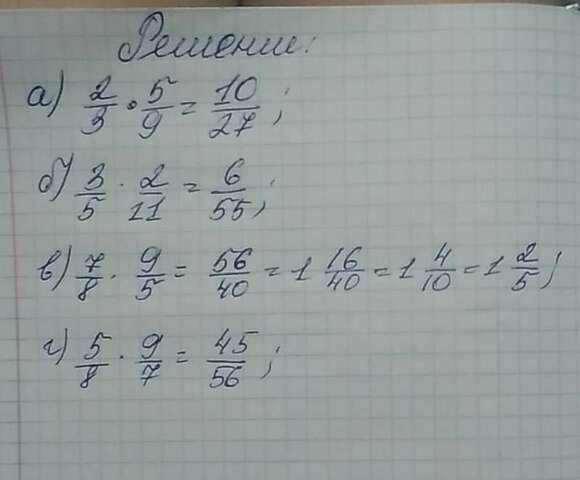 Решение:
а) 2/3 · 5/9 = 10/27;
б) 3/5 · 2/11 = 6/55;
в) 7/8 · 9/5 = 56/40 = 1 16/40 = 1 4/10 = 1 2/5;
г) 5/8 · 9/7 = 45/56;